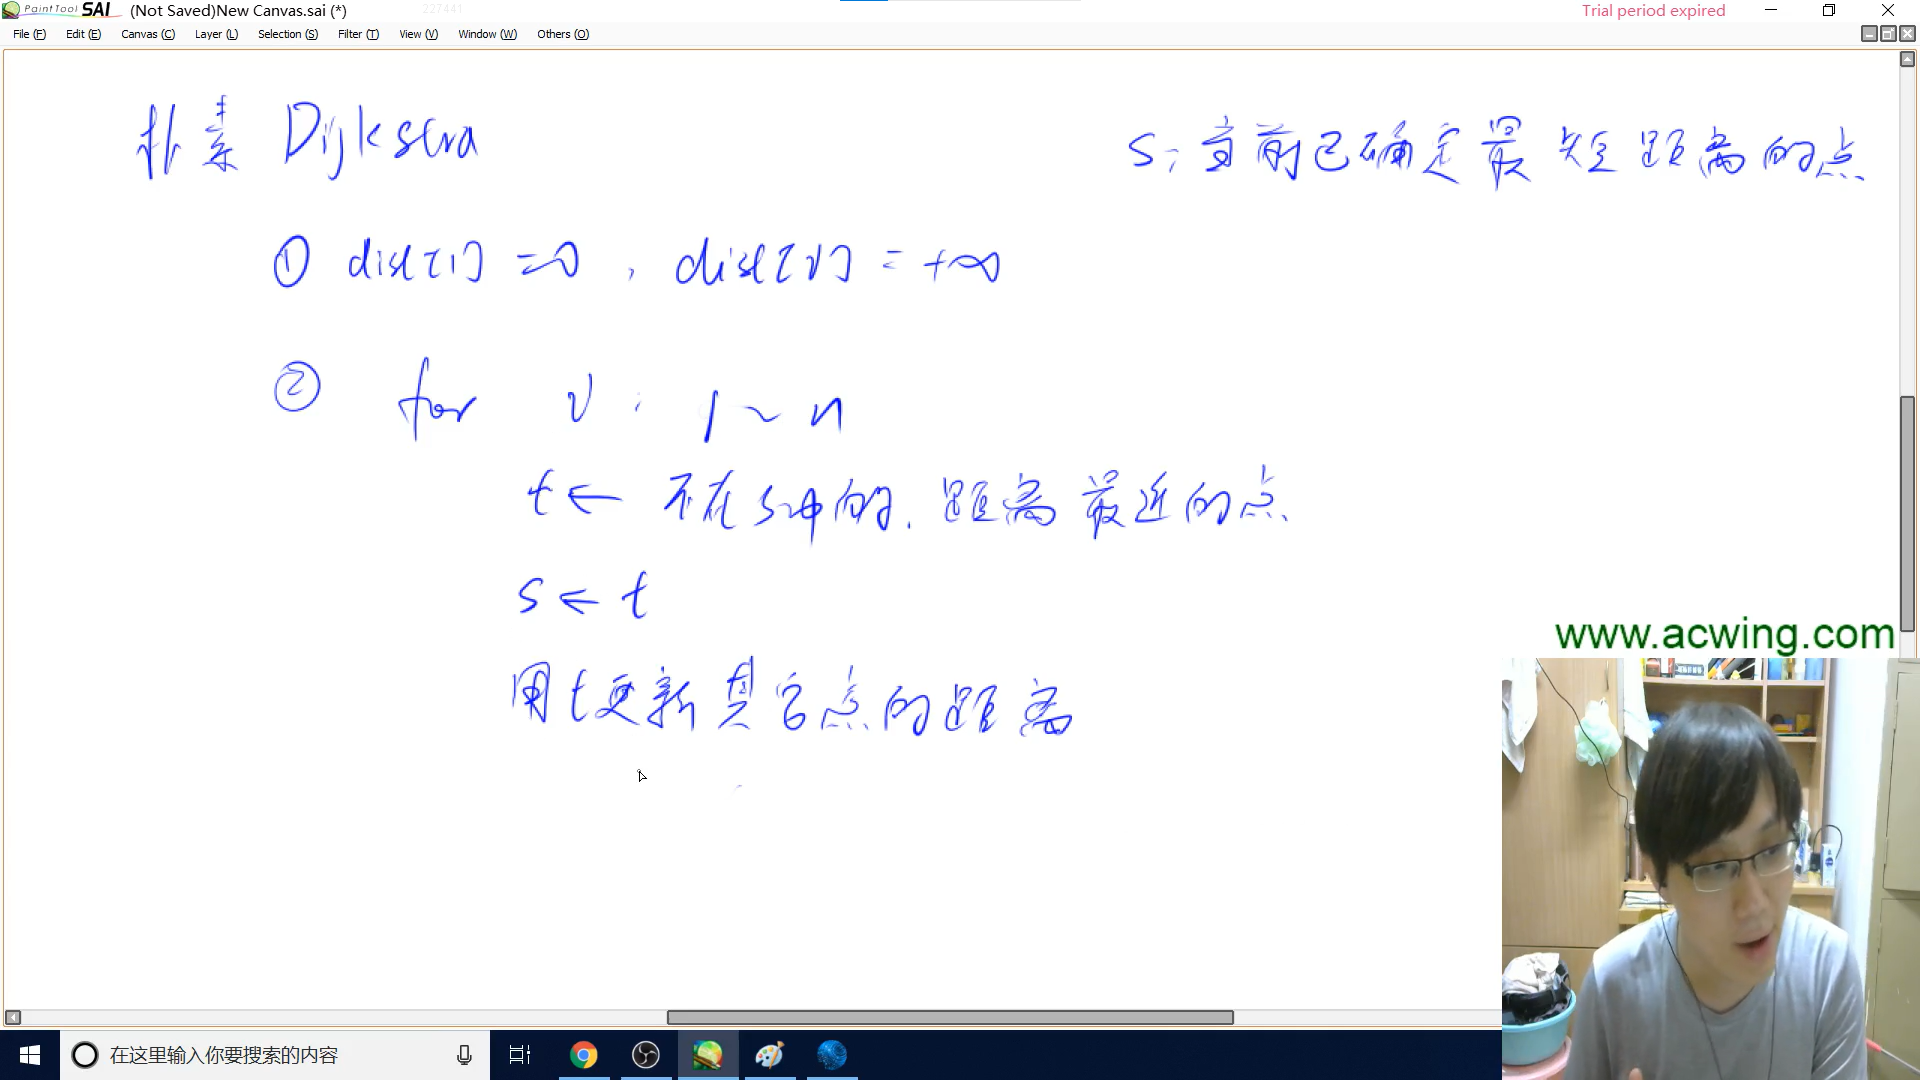 PaintTool SAI (Not Saved)New Canvas.sai (*) 227441 Trial period expired
File (F) Edit (E) Canvas (C) Layer (L) Selection (S) Filter (T) View (V) Window (W) Others (O)
朴素 Dijkstra
S: 当前已确定最短距离的点
① dist[1] = 0, dist[v] = +∞
② for v: 1 ~ n
t ← 不在S中的, 距离最近的点
S ← t
用t更新其它点的距离
www.acwing.com
在这里输入你要搜索的内容